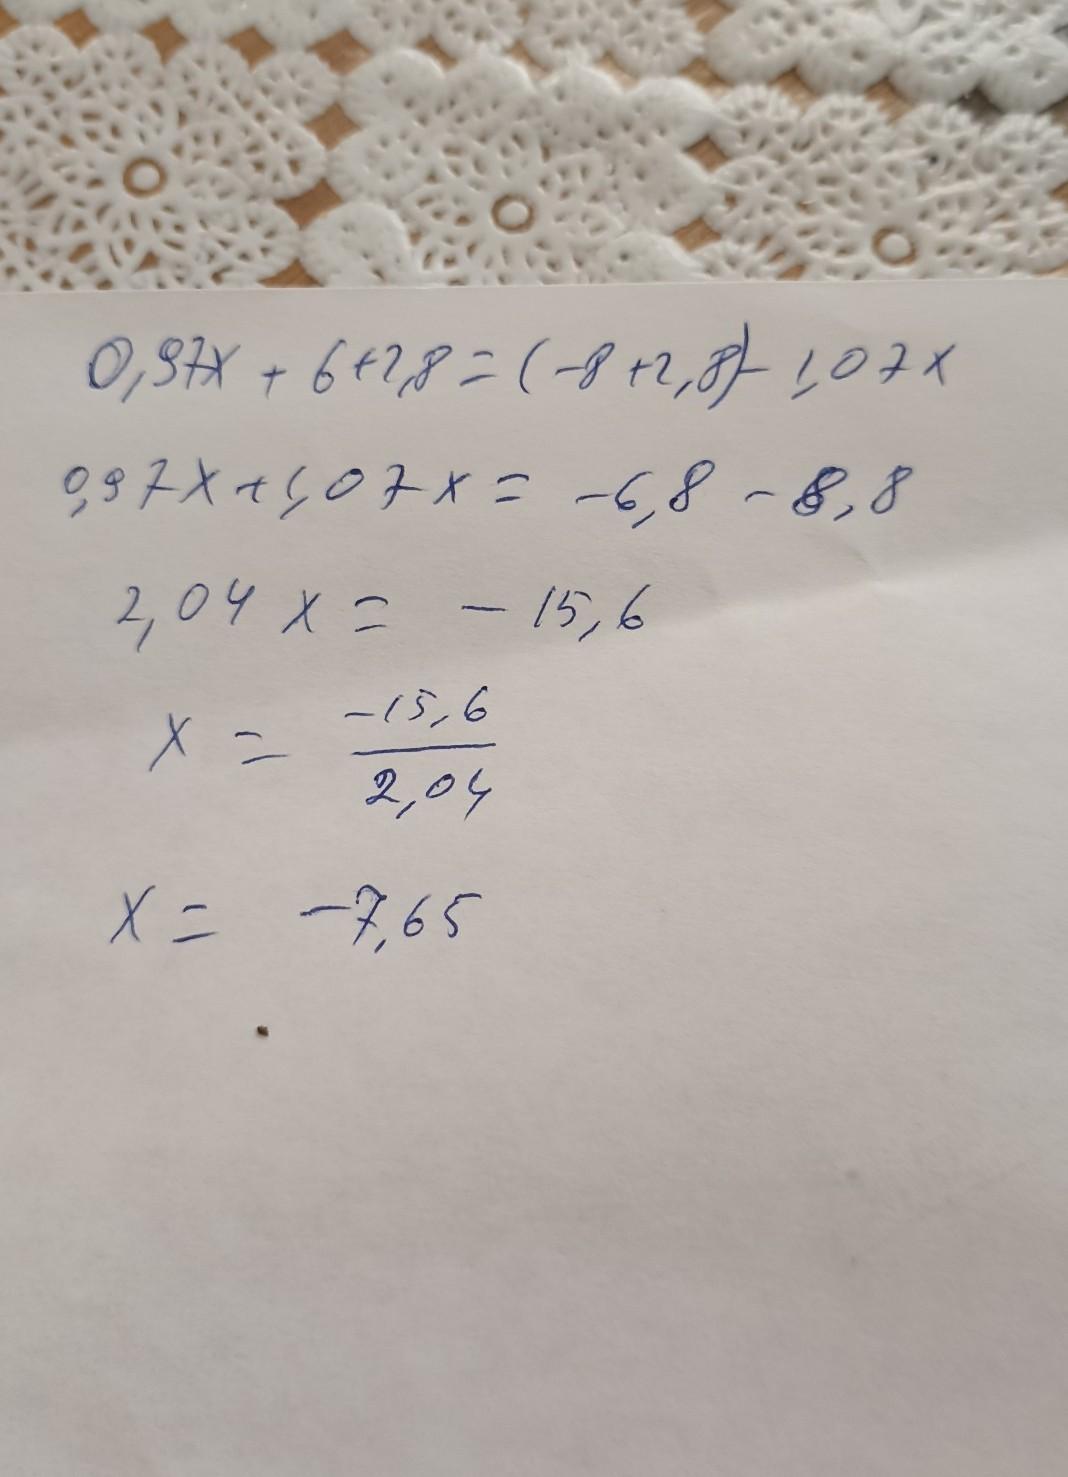 0,97x + 6+2,8 = (-8+2,8)- 1,07x
0,97x+1,07x = -6,8 - 8,8
2,04 x = - 15,6
x = -15,6/2,04
x = -7,65